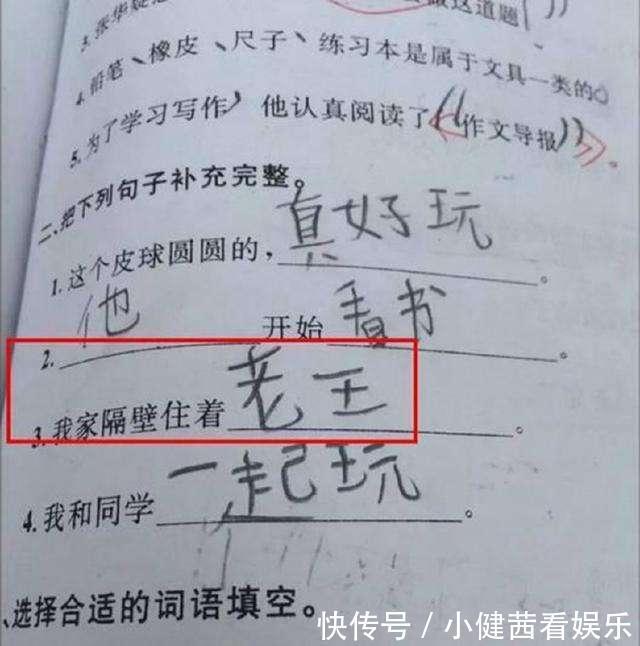 3.张华疑惑 做这道题()
4.铅笔、橡皮、尺子、练习本是属于文具一类的。
5.为了学习写作,他认真阅读了《作文导报》。
二、把下列句子补充完整。
1.这个皮球圆圆的,真好玩。
2.他开始看书。
3.我家隔壁住着老王。
4.我和同学一起玩。
、选择合适的词语填空。
快传号/小健茜看娱乐